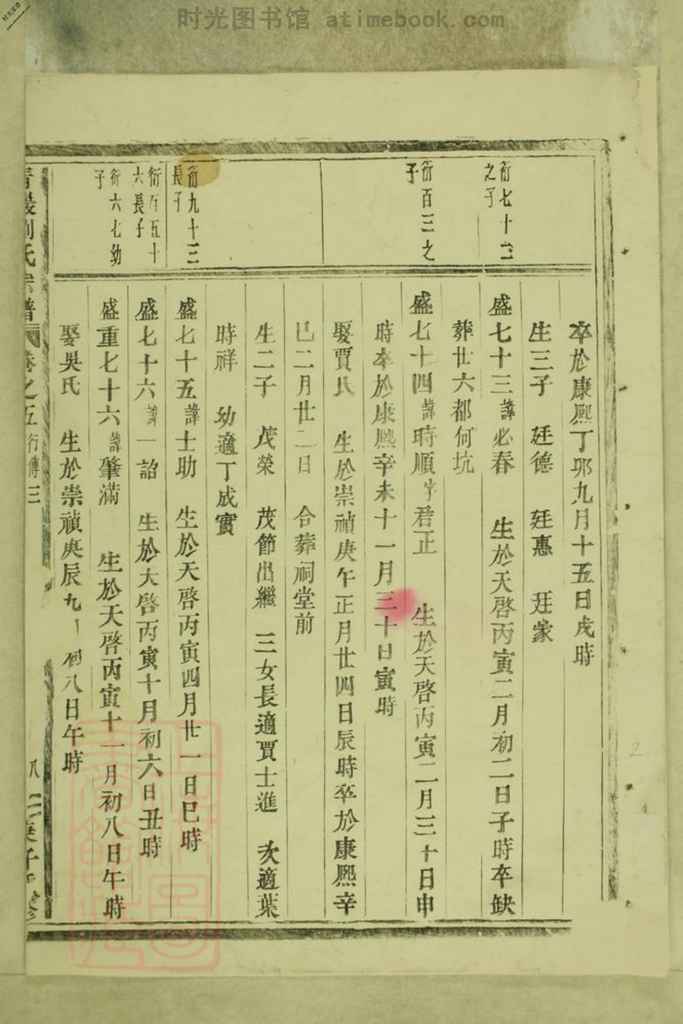 时光图书馆 atimebook.com
衍七十三
之子
衍百三之
子
衍九十三
長子
衍五十
六長子
衍六七幼
子
卒於康熙丁卯九月十五日戌時
生三子 廷德 廷惠 廷家
盛七十三諱必春 生於天啓丙寅二月初二日子時卒缺
葬廿六都何坑
盛七十四諱時順字君正 生於天啓丙寅二月三十日申
時卒於康熙辛未十一月三十日寅時
娶賈氏 生於崇禎庚午正月廿四日辰時卒於康熙辛
巳二月廿二日 合葬祠堂前
生二子 茂榮 茂節出繼 三女長適賈士進 次適葉
時祥 幼適丁成實
盛七十五諱士助 生於天啓丙寅四月廿一日巳時
盛七十六諱一詔 生於天啓丙寅十月初六日丑時
盛重七十六諱肇滿 生於天啓丙寅十一月初八日午時
娶吳氏 生於崇禎庚辰九 初八日午時
劉氏宗譜 卷之五行傳三
八
庚子